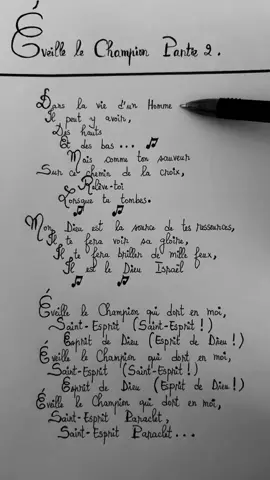 Éveille le Champion Partie 2.
Dans la vie d'un Homme
Il peut y avoir,
Des hauts
Et des bas...
Mais comme ton sauveur
Sur ce chemin de la croix,
Relève-toi
Lorsque tu tombes.
Mon Dieu est la source de tes ressources,
Il te fera voir sa gloire,
Il te fera briller de mille feux,
Il est le Dieu Israël
Éveille le Champion qui dort en moi,
Saint-Esprit (Saint-Esprit!)
Esprit de Dieu (Esprit de Dieu!)
Éveille le Champion qui dort en moi,
Saint-Esprit (Saint-Esprit!)
Esprit de Dieu (Esprit de Dieu!)
Éveille le Champion qui dort en moi,
Saint-Esprit Paraclet,
Saint-Esprit Paraclet...